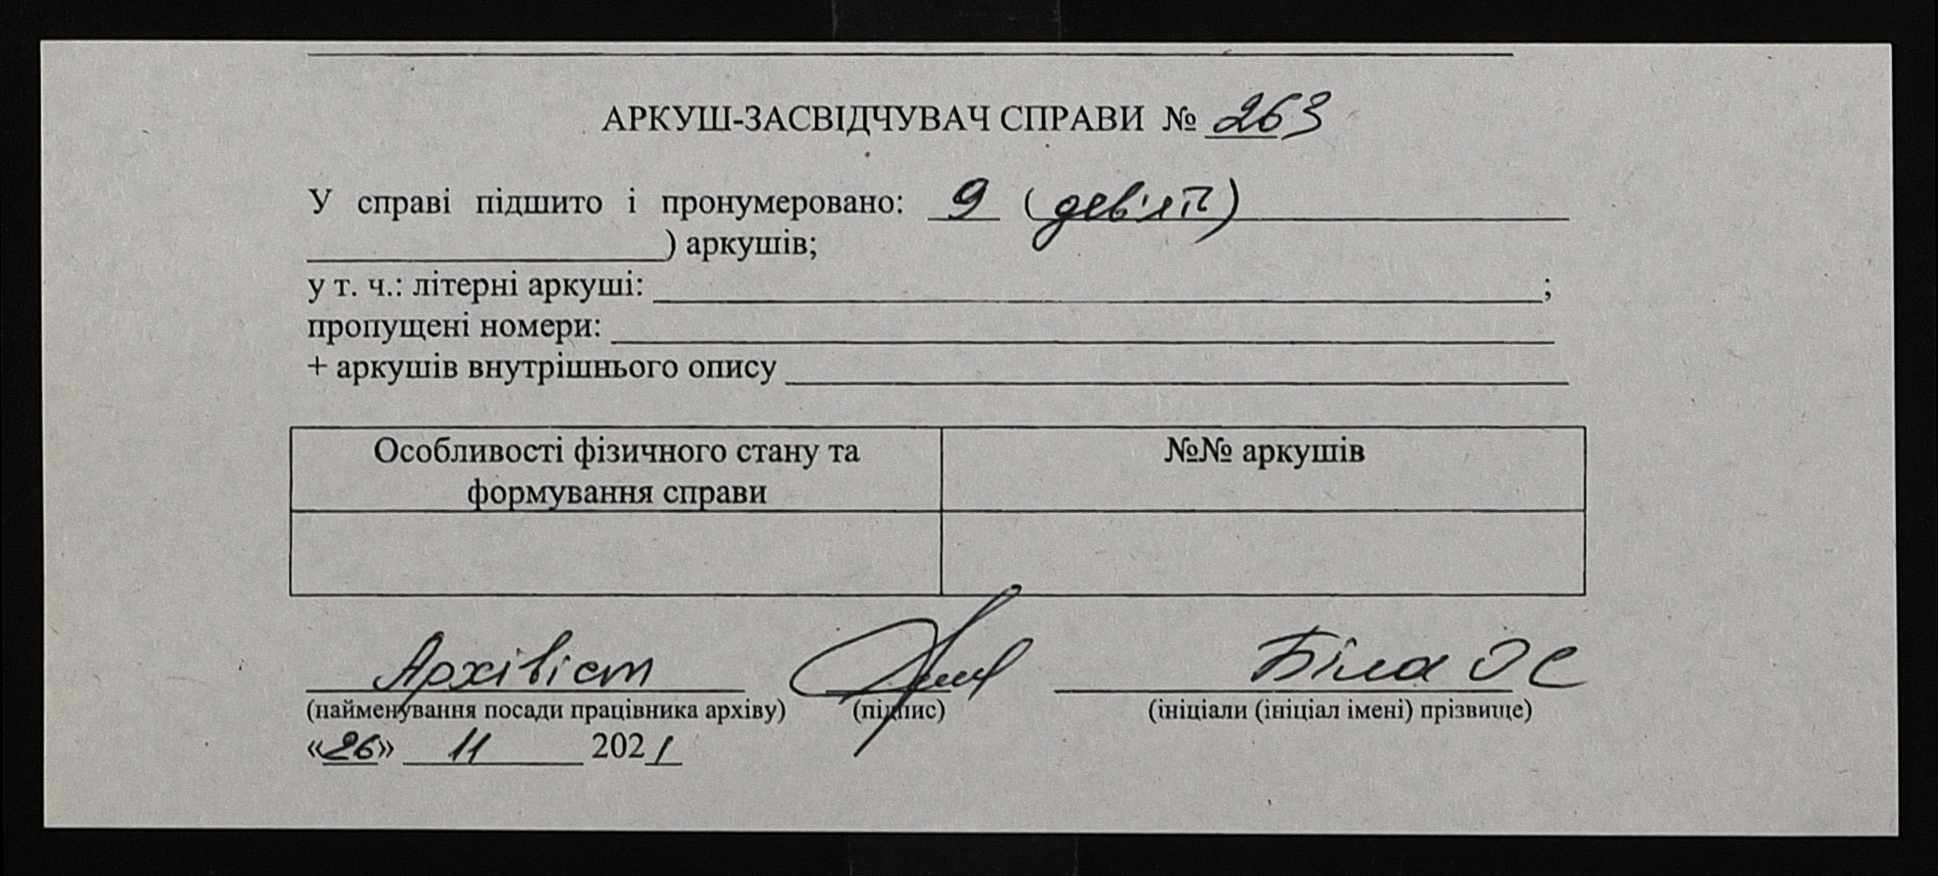 АРКУШ-ЗАСВІДЧУВАЧ СПРАВИ № 263
У справі підшито і пронумеровано: 9 (дев'ять)
) аркушів;
у т. ч.: літерні аркуші: ;
пропущені номери:
+ аркушів внутрішнього опису
Особливості фізичного стану та формування справи
№№ аркушів
Архівіст Біла О С
(найменування посади працівника архіву) (підпис) (ініціали (ініціал імені) прізвище)
«26» 11 2021